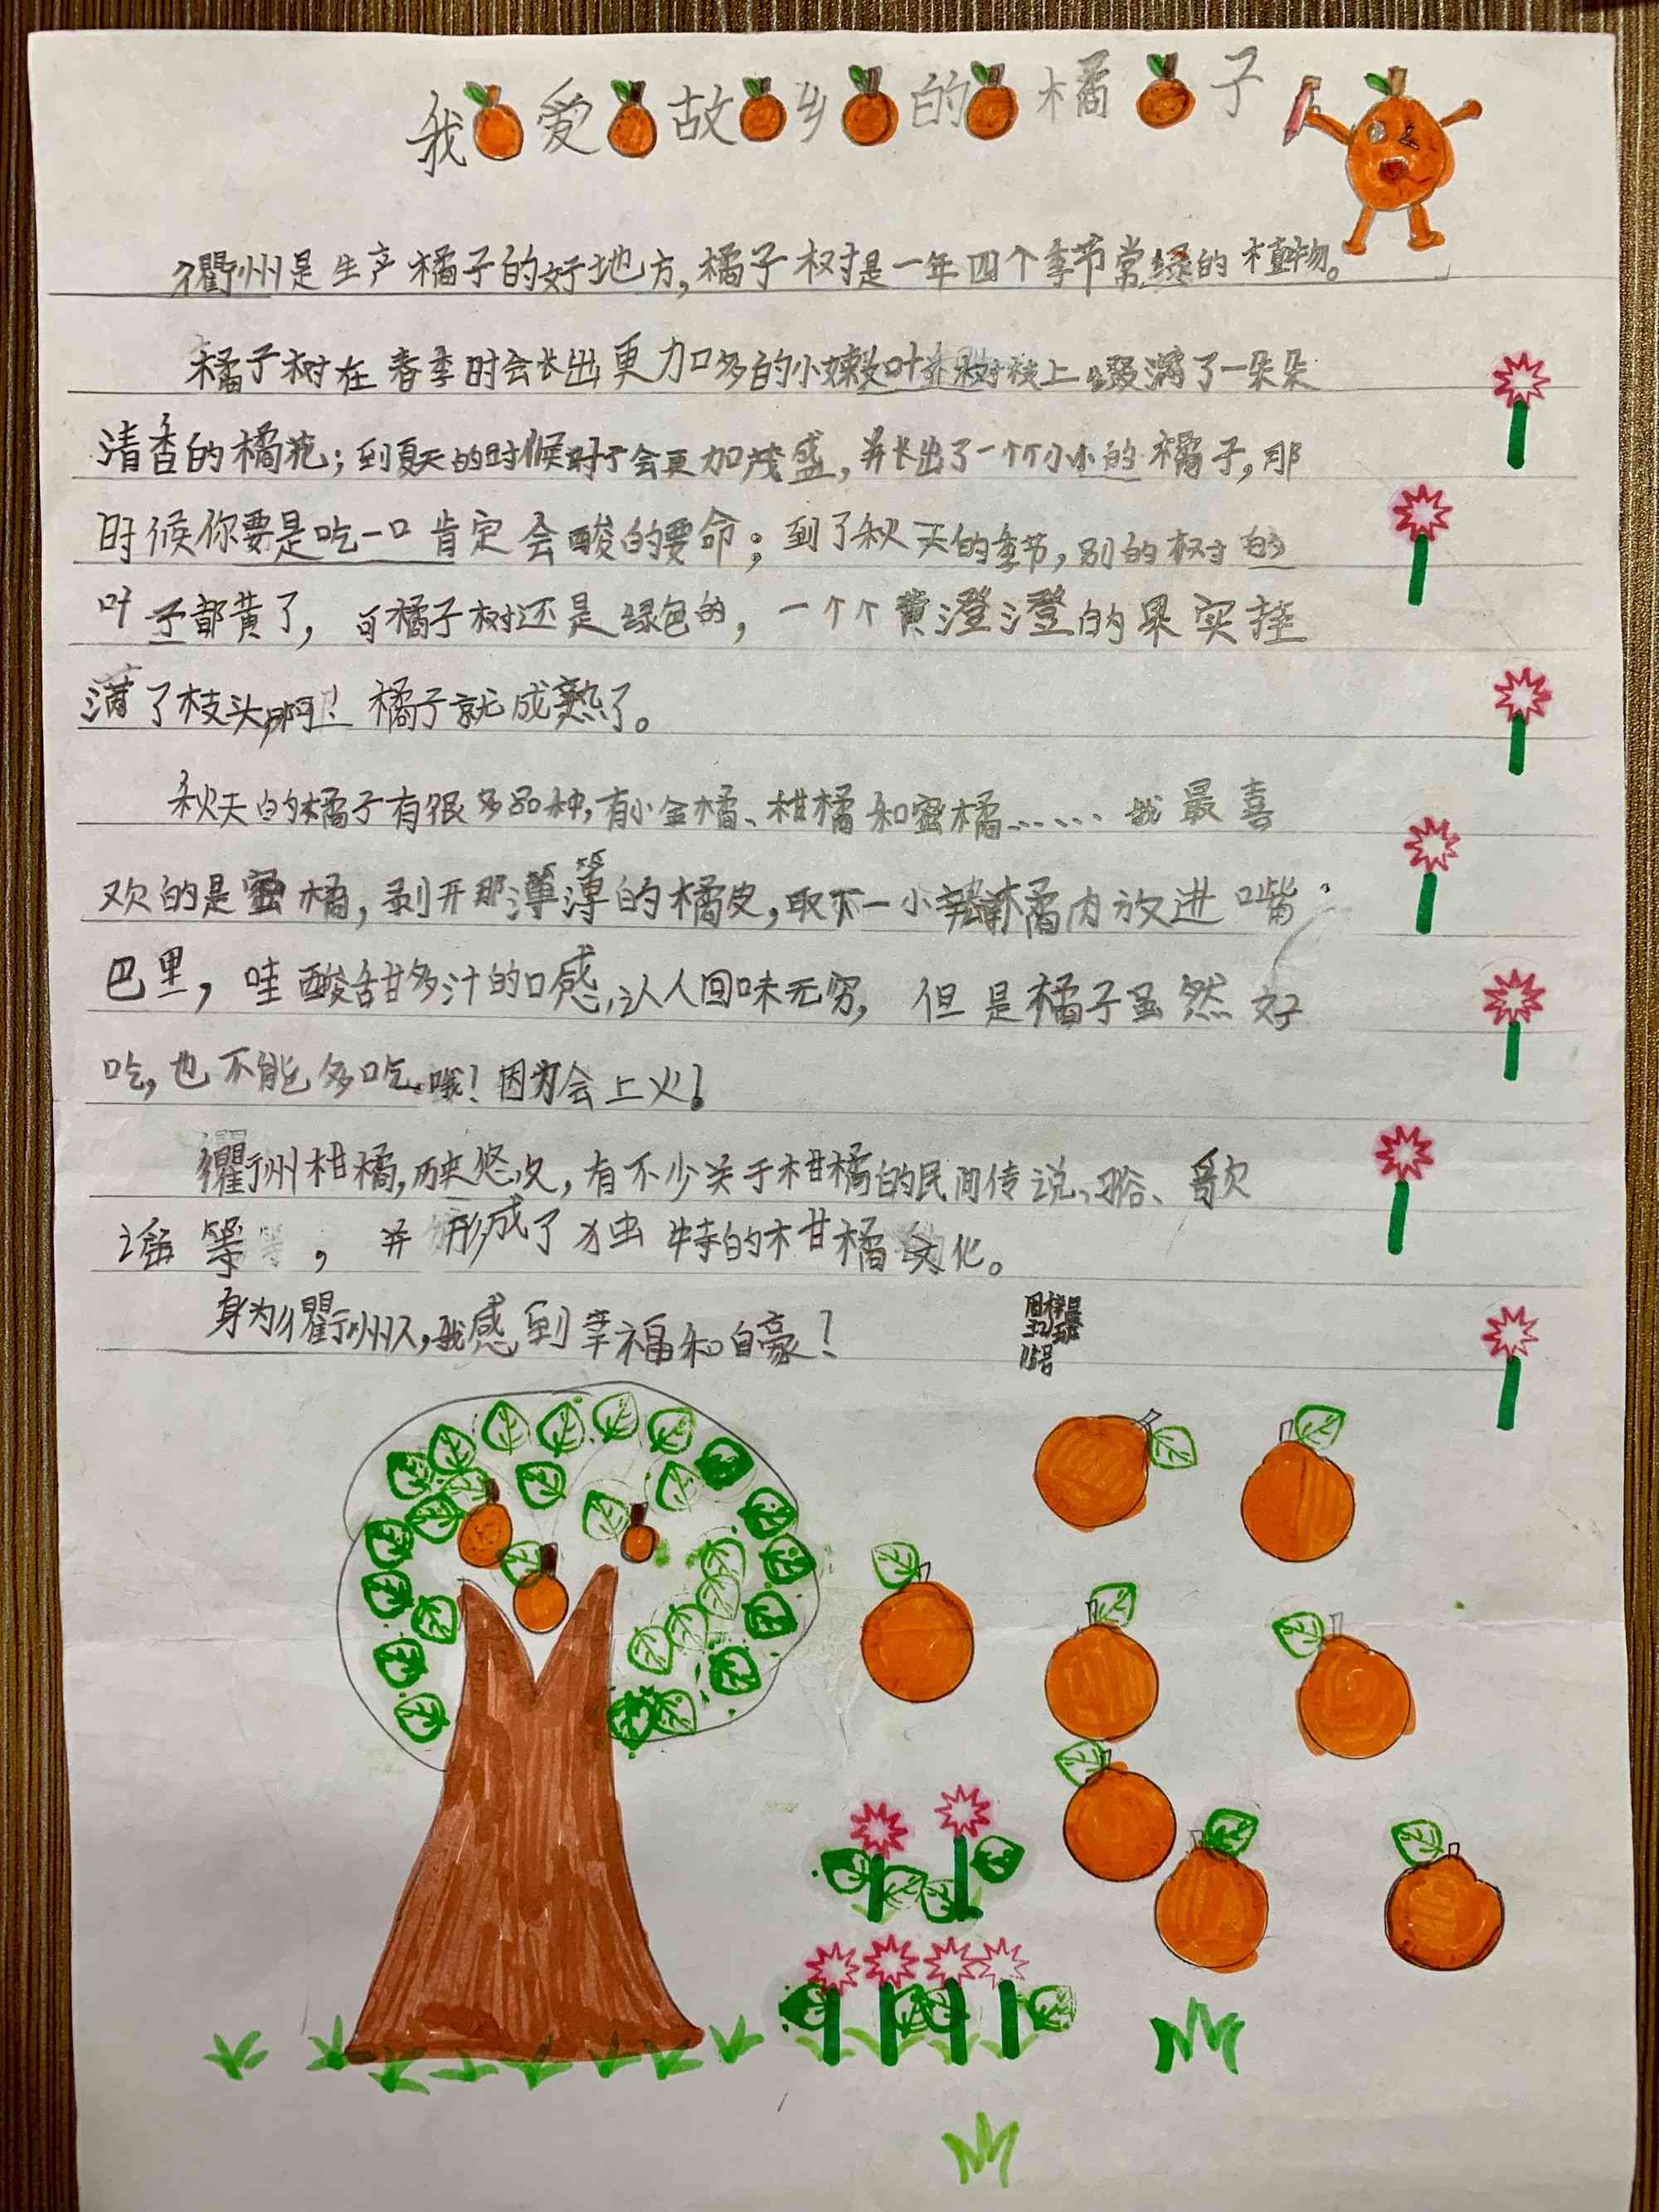 我爱故乡的橘子
衢州是生产橘子的好地方,橘子树是一年四个季节常绿的植物。
橘子树在春季时会长出更加多的小嫩叶并且树枝上缀满了一朵朵
清香的橘花;到夏天的时候树子会更加茂盛,并长出了一个个小小的橘子,那
时候你要是吃一口肯定会酸的要命;到了秋天的季节,别的树的
叶子都黄了,可橘子树还是绿色的,一个个黄澄澄的果实挂
满了枝头,啊!橘子就成熟了。
秋天的橘子有很多品种,有小金橘、柑橘和蜜橘……我最喜
欢的是蜜橘,剥开那薄薄的橘皮,取下一小瓣橘肉放进嘴
巴里,哇酸甜多汁的口感,让人回味无穷,但是橘子虽然好
吃,也不能多吃哦!因为会上火!
衢州柑橘,历史悠久,有不少关于柑橘的民间传说、俗、歌
谣等,并形成了独特的柑橘文化。
身为衢州人,我感到幸福和自豪!